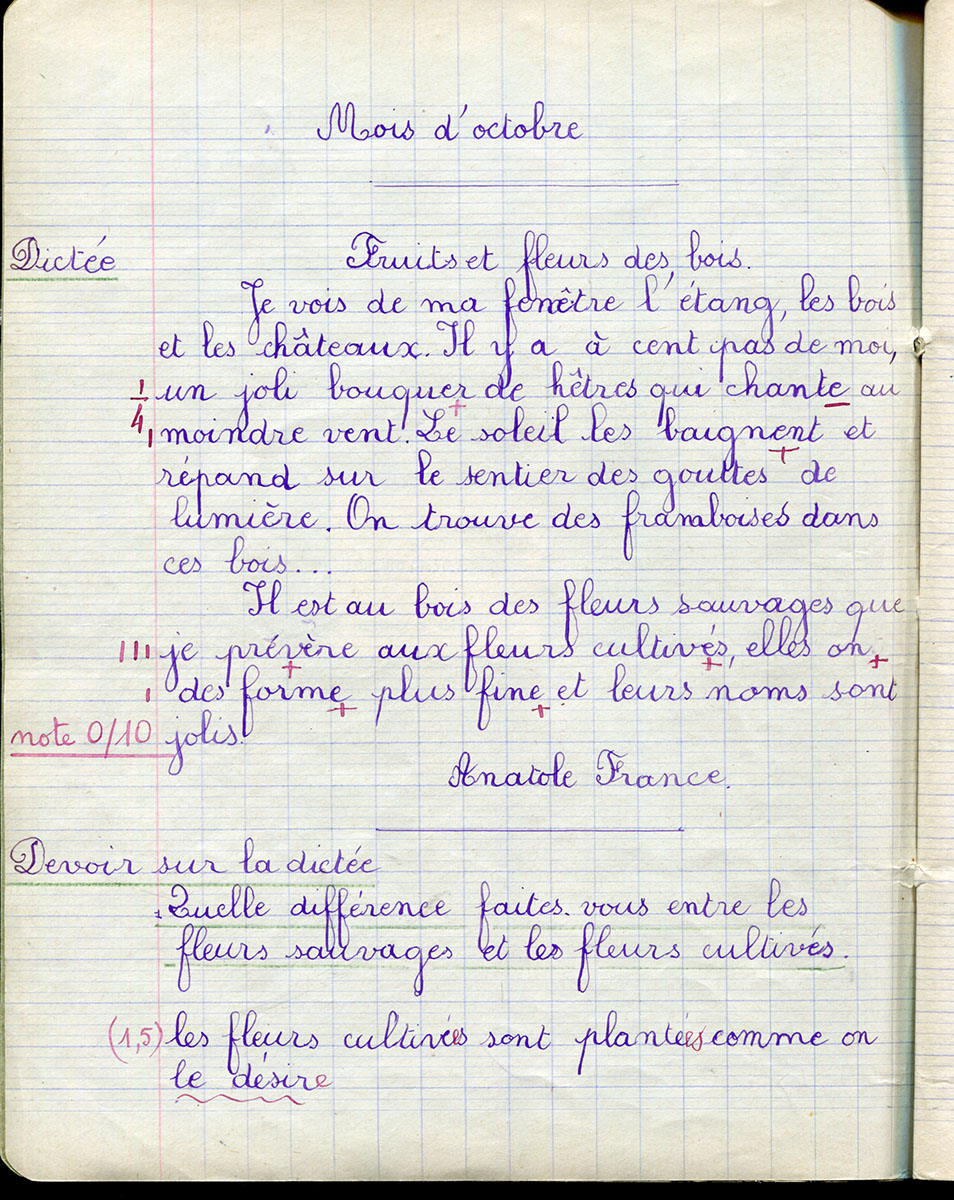 Mois d'octobre
Dictée
Fruits et fleurs des bois.
Je vois de ma fenêtre l'étang, les bois
et les châteaux. Il y a à cent pas de moi,
1/4 un joli bouquer de hêtres qui chante au
moindre vent. Le soleil les baignent et
répand sur le sentier des gouttes de
lumière. On trouve des framboises dans
ces bois...
Il est au bois des fleurs sauvages que
je prévère aux fleurs cultivés, elles on
des forme plus fine et leurs noms sont
note 0/10 jolis.
Anatole France.
Devoir sur la dictée
1 Quelle différence faites-vous entre les
fleurs sauvages et les fleurs cultivés.
(1,5) les fleurs cultivées sont plantées comme on
le désire